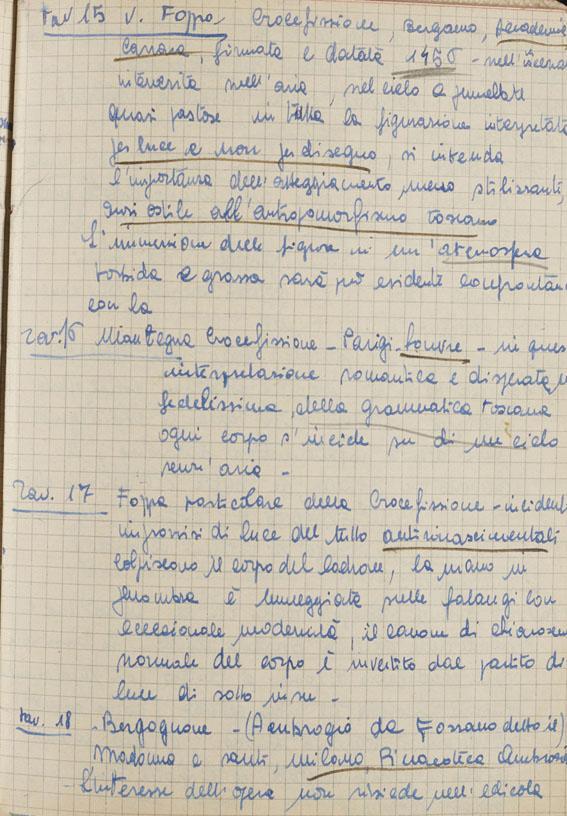 Tav 15 V. Foppa Crocefissione, Bergamo, Accademia
Carrara, firmata e datata 1456 - nell'incensa
intenerita nell'aria, nel cielo a pennellate
quasi pastose in tutta la figurazione interpretata
per luce e non per disegno, si intenda
l'importanza dell'atteggiamento meno stilizzante,
quasi ostile all'antropomorfismo toscano
L'immersione delle figure in un'atmosfera
torbida e grassa sarà più evidente confrontan
con la
Tav. 16 Mantegna Crocefissione - Parigi - Louvre - in ques
interpretazione romantica e disperata, m
fedelissima della grammatica toscana
ogni corpo s'incide su di un cielo
senz'aria -
Tav. 17 Foppa particolare della Crocefissione - incident
improvvisi di luce del tutto antirinascimentali
colpiscono il corpo del ladrone, la mano in
penombra è lumeggiata nelle falangi con
eccezionale modernità, il canone di chiaroscu
normale del corpo è invertito dal partito di
luce di sotto in su -
Tav. 18 - Bergognone - (Ambrogio da Fossano detto il)
Madonna e santi, Milano, Pinacoteca Ambrosi
- L'interesse dell'opera non risiede nell'edicola